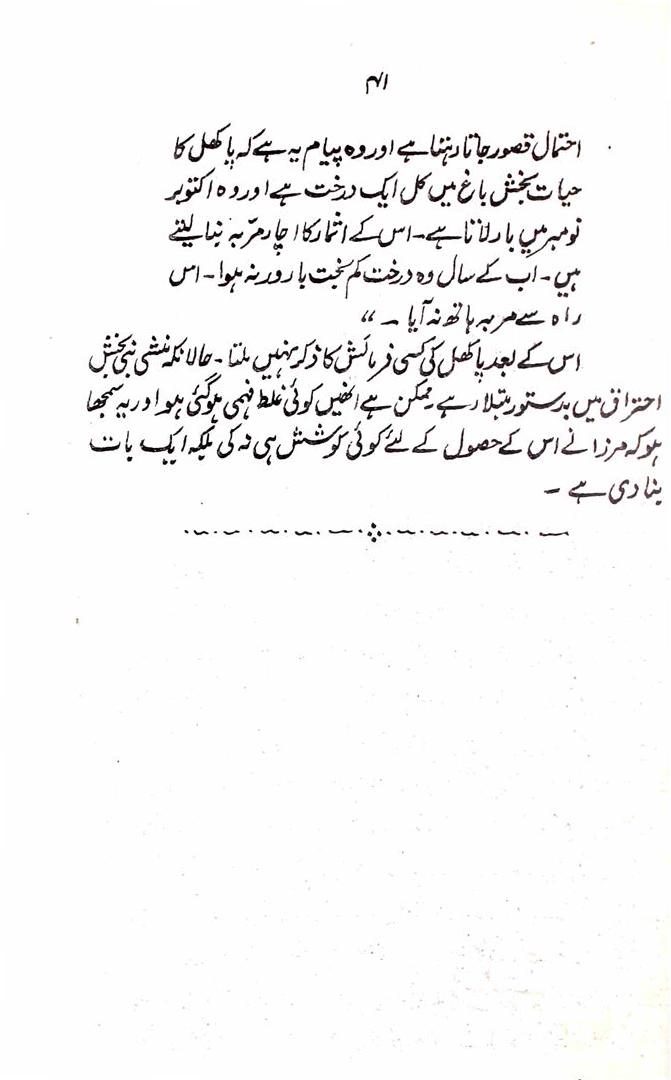 ۴۱
احتمال قصور جاتا رہتا ہے اور وہ پیام یہ ہے کہ پاکھل کا
حیات بخش باغ میں کل ایک درخت ہے اور وہ اکتوبر
نومبر میں بار لاتا ہے۔ اس کے اثمار کا اچار مربّہ بنا لیتے
ہیں۔ اب کے سال وہ درخت کم بخت بارور نہ ہوا۔ اس
راہ سے مربہ ہاتھ نہ آیا ۔ “
اس کے بعد پاکھل کی کسی فرمائش کا ذکر نہیں ملتا۔ حالانکہ منشی نبی بخش
احتراق میں بدستور مبتلا رہے ممکن ہے انھیں کوئی غلط فہمی ہو گئی ہو اور یہ سمجھا
ہو کہ مرزا نے اس کے حصول کے لئے کوئی کوشش ہی نہ کی بلکہ ایک بات
بنا دی ہے ۔